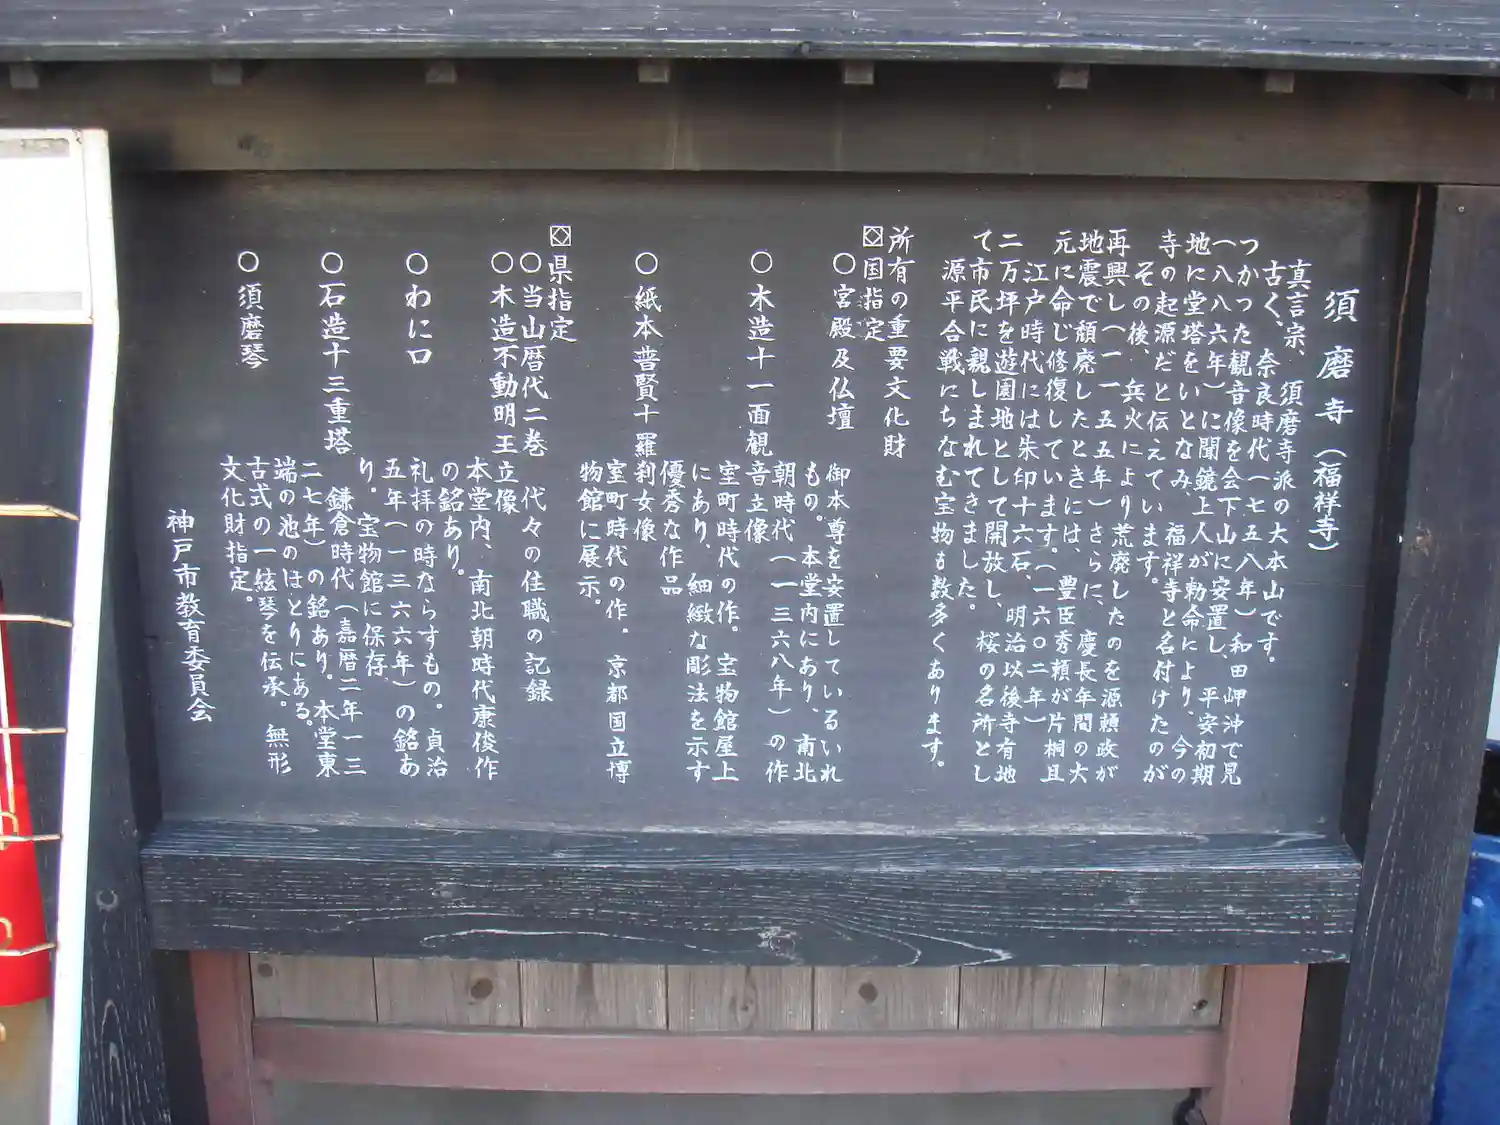 須磨寺（福祥寺）
真言宗、須磨寺派の大本山です。
古く、奈良時代（七五八年）和田岬沖で見
つかった観音像を会下山に安置し、平安初期
（八八六年）に聞鏡上人が勅命により、今の
地に堂塔をいとなみ、福祥寺と名付けたのが
寺の起源だと伝えています。
その後、兵火により荒廃したのを源頼政が
再興し（一一五五年）さらに、慶長年間の大
地震で頽廃したときには、豊臣秀頼が片桐且
元に命じ修復しています。（一六〇二年）
江戸時代には朱印十六石、明治以後寺有地
二万坪を遊園地として開放し、桜の名所とし
て市民に親しまれてきました。
源平合戦にちなむ宝物も数多くあります。
所有の重要文化財
国指定
○宮殿及仏壇
御本尊を安置しているいれ
もの。本堂内にあり、南北
朝時代（一三六八年）の作
○木造十一面観音立像
室町時代の作。宝物館屋上
にあり、細緻な彫法を示す
優秀な作品
○紙本普賢十羅刹女像
室町時代の作。京都国立博
物館に展示。
県指定
○当山歴代二巻 代々の住職の記録
○木造不動明王立像
本堂内、南北朝時代康俊作
の銘あり。
○わに口
礼拝の時ならすもの。貞治
五年（一三六六年）の銘あ
り。宝物館に保存。
○石造十三重塔
鎌倉時代（嘉暦二年一三
二七年）の銘あり。本堂東
端の池のほとりにある。
○須磨琴
古式の一絃琴を伝承。無形
文化財指定。
神戸市教育委員会